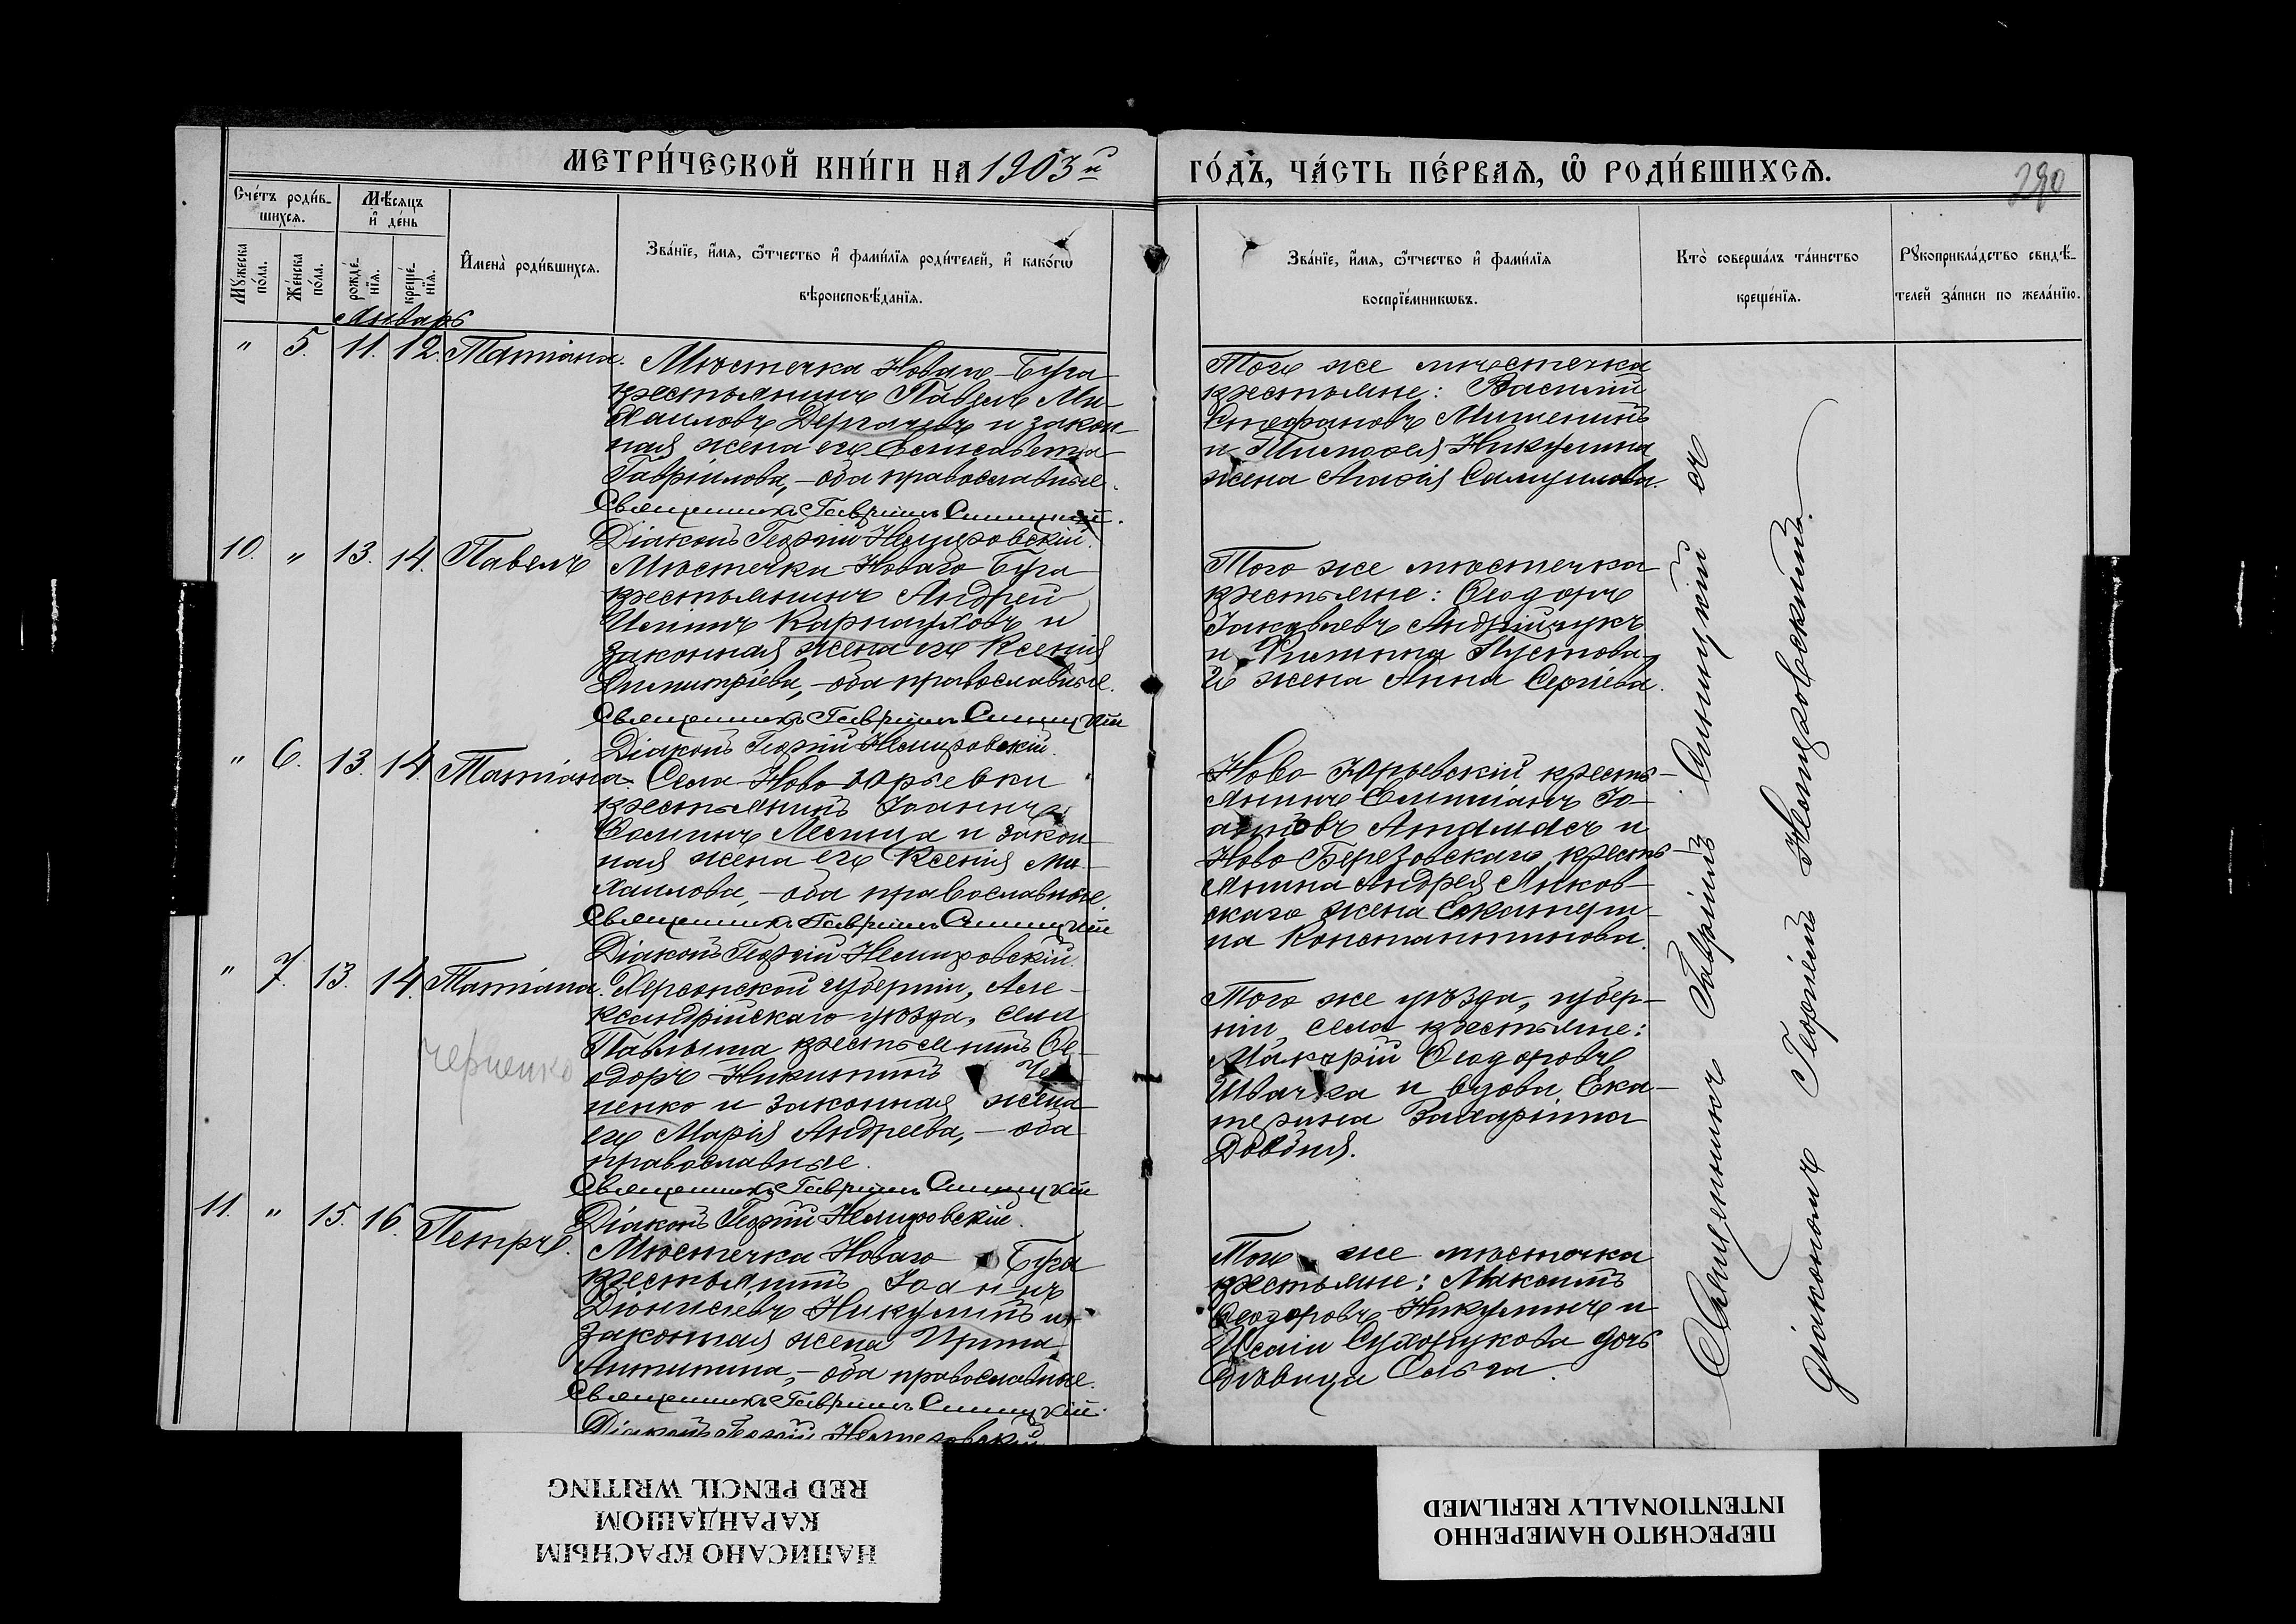 МЕТРИ́ЧЕСКОЙ КНИ́ГИ НА 1903й ГО́ДЪ, ЧА́СТЬ ПЕ́РВАЯ, Ѿ РОДИ́ВШИХСЯ.
290
Сче́тъ роди́в-
шихся.
Мѣ́сяцъ
и҆ де́нь
Мꙋжеска
по́ла.
Же́нска
по́ла.
рожде́-
нїя.
креще́-
нїя.
И҆мена̀ роди́вшихся.
Зва́нїе, и҆́мя, ѻ҆́тчество и҆ фами́лїя роди́телей, и҆ како́гѡ
вѣроисповѣ́данїя.
Зва́нїе, и҆́мя, ѻ҆́тчество и҆ фами́лїя
воспрїе́мникѡвъ.
Кто̀ соверша́лъ та́инство
креще́нїя.
Рꙋкоприкла́дство свидѣ́-
телей за́писи по жела́нїю.
Январь
" 5. 11. 12. Татіана.
Мѣстечка Новаго-Буга
крестьянинъ Павелъ Ми-
хаиловъ Дергачевъ и закон-
ная жена его Елисавета
Гавріилова, – оба православные.
Священникъ Гавріилъ Синицкій.
Діаконъ Георгій Немировскій.
Того же мѣстечка
крестьяне: Василій
Стефановъ Мишенинъ
и Тимофея Никулина
жена Агафія Самуилова.
10. " 13. 14. Павелъ
Мѣстечка Новаго Буга
крестьянинъ Андрей
Карнауховъ и
законная жена его Ксенія
Димитріева, – оба православные.
Священникъ Гавріилъ Синицкій
Діаконъ Георгій Немировскій.
Того же мѣстечка
крестьяне: Ѳеодоръ
Іаковлевъ Андрійчукъ
и Филиппа Пустова-
го жена Анна Сергіева.
" 6. 13. 14. Татіана.
Села Ново Юрьевки
крестьянинъ Іоаннъ
Ѳоминъ Лесница и закон-
ная жена его Ксенія Ми-
хаилова, – оба православные.
Священникъ Гавріилъ Синицкій
Діаконъ Георгій Немировскій.
Ново Юрьевскій кресть-
янинъ Емиліанъ Іо-
анновъ и
Ново Березовскаго кресть-
янина Андрея Янков-
скаго жена Екатери-
на Константинова.
" 7. 13. 14. Татіана.
Черненко
Херсонской губерніи, Але-
ксандрійскаго уѣзда, села
Павлыша крестьянинъ Ѳе-
одоръ Никитинъ Чер-
ненко и законная жена
его Марія Андреева, – оба
православные.
Священникъ Гавріилъ Синицкій
Діаконъ Георгій Немировскій.
Того же уѣзда, губер-
ніи, села крестьяне:
Макарій Ѳеодоровъ
Швачка и вдова Ека-
терина Захаріина
Довбня.
11. " 15. 16. Петръ.
Мѣстечка Новаго Буга
крестьянинъ Іоаннъ
Діонисіевъ Никулинъ и
законная жена Ирина
Антипина, – оба православные.
Священникъ Гавріилъ Синицкій.
Діаконъ Георгій Немировскій
Того же мѣстечка
крестьяне: Максимъ
Ѳеодоровъ Никулинъ и
Исаіи Сухорукова дочь
дѣвица Ольга.
Священникъ Гавріилъ Синицкій съ
діакономъ Георгіемъ Немировскимъ.
НАПИСАНО КРАСНЫМ
КАРАНДАШОМ
RED PENCIL WRITING
ПЕРЕСНЯТО НАМЕРЕННО
INTENTIONALLY REFILMED